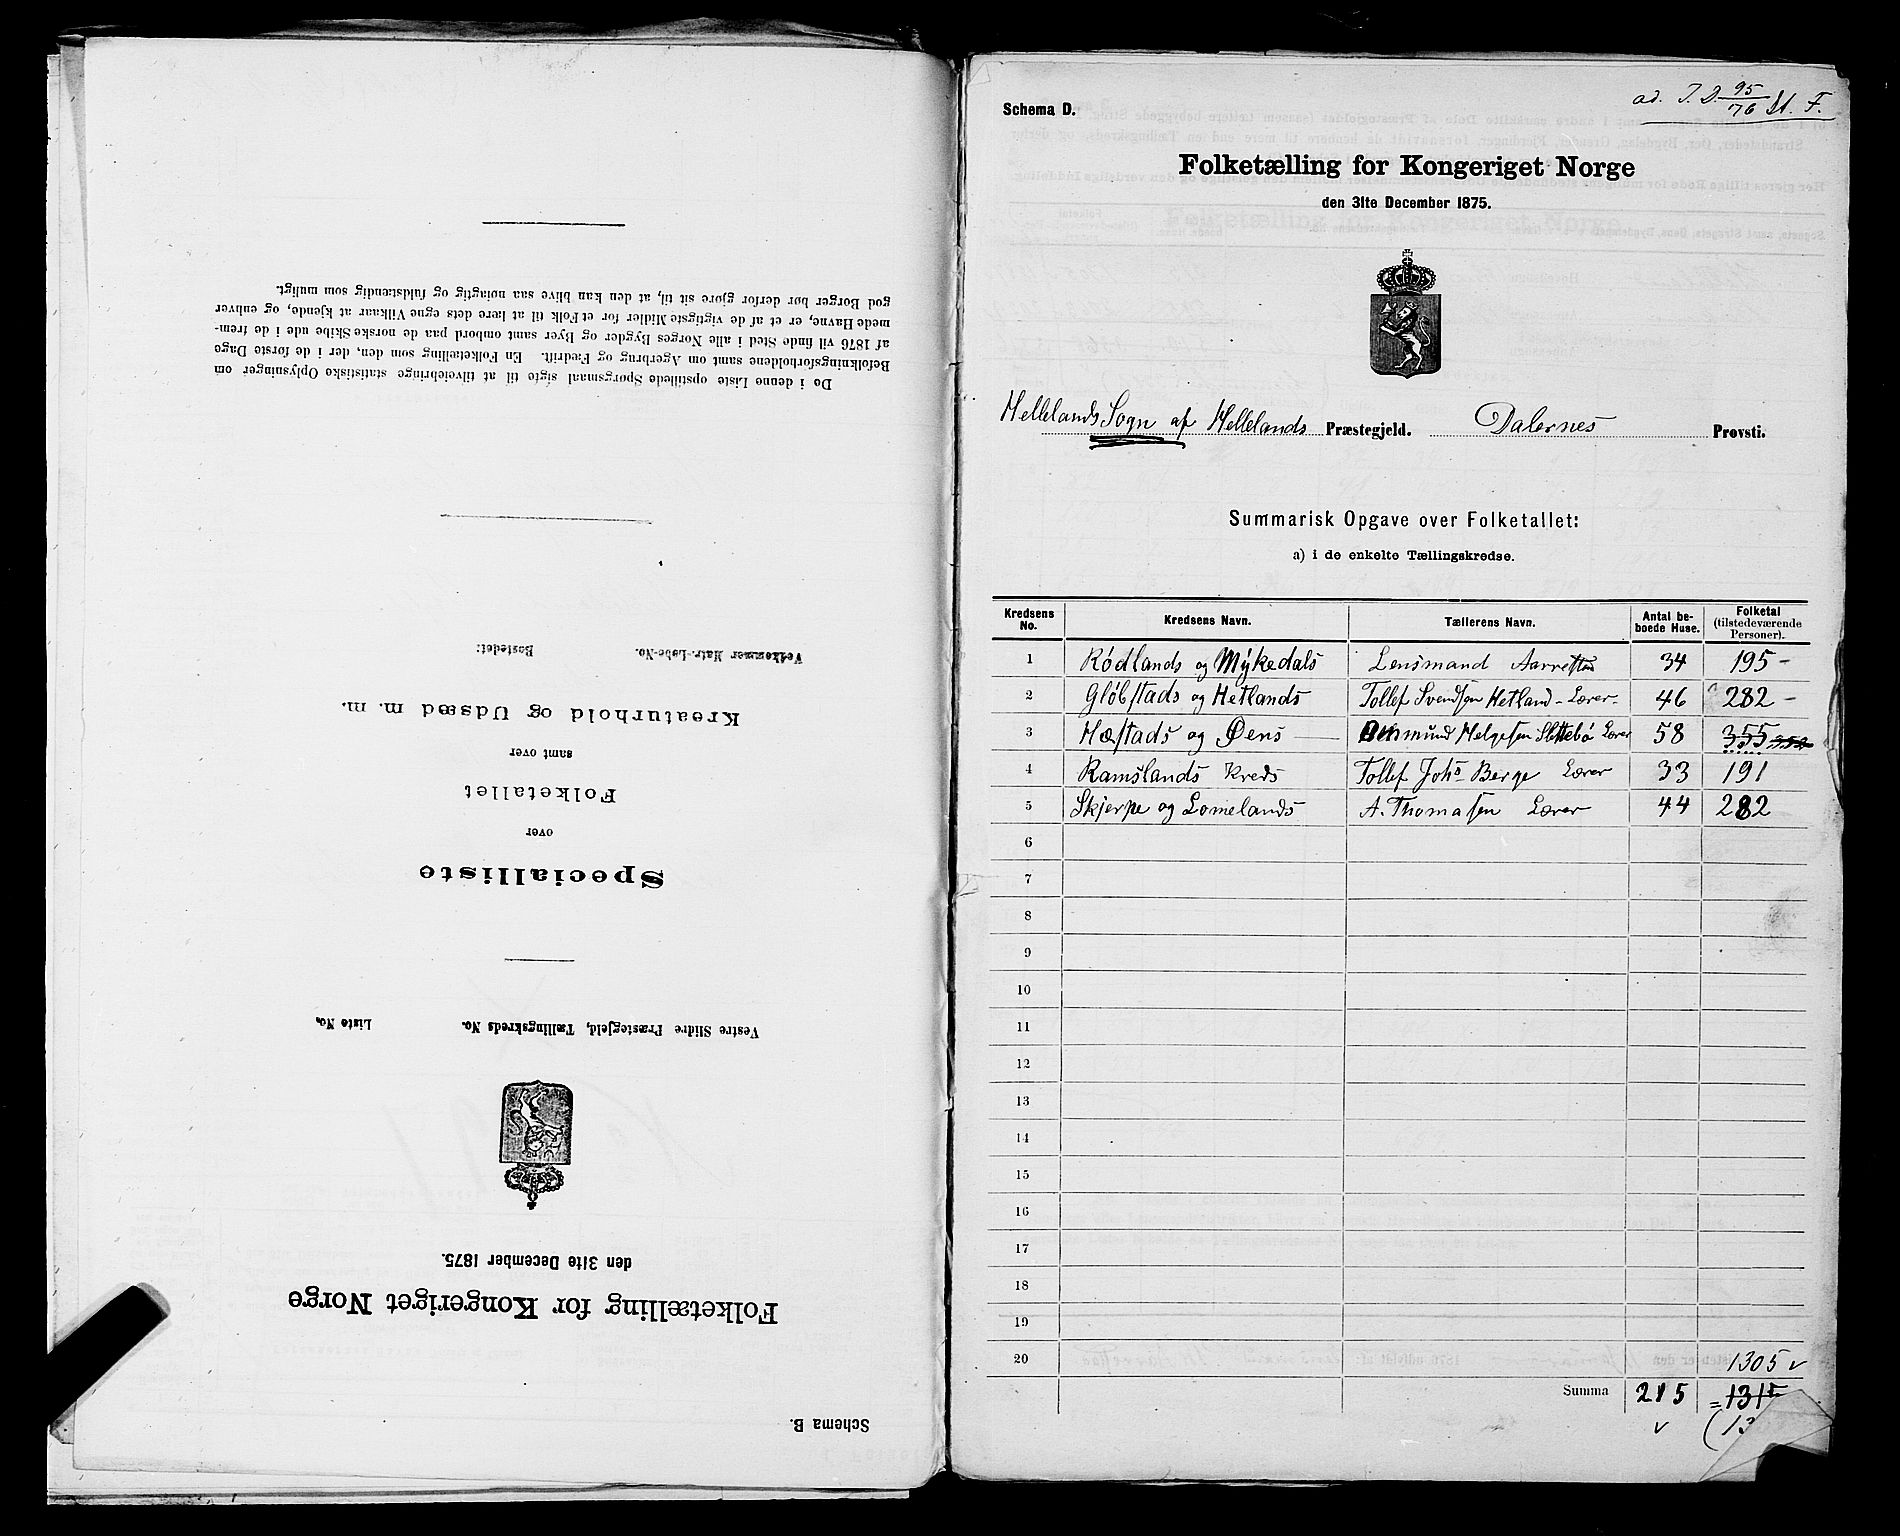 Schema B.
Folketælling for Kongeriget Norge
den 31te December 1875.
Vestre Slidre Præstegjeld, Tællingskreds No. Liste No.
Specialliste
over
Folketallet
samt over
Kreaturhold og Udsæd m. m.
Vedkommer Matr.-Løbe-No. Bostedet:
Da i denne Liste opstillede Spørgsmaal sigte til at tilveiebringe statistiske Oplysninger om
Befolkningsforholdene samt om Agerbrug og Fædrift. En Folketælling som den, der i de første Dage
af 1876 vil finde Sted i alle Norges Bygder og Byer samt ombord paa de norske Skibe ude i de frem-
mede Havne, er et af de vigtigste Midler for et Folk til at lære dets egne Vilkaar at kjende, og enhver
god Borger bør derfor gjøre sit til, at den kan blive saa nøiagtig og fuldstændig som muligt.
Schema D.
ad. J. D. 95/76 St. F.
Folketælling for Kongeriget Norge
den 31te December 1875.
Hellelands Sogn af Hellelands Præstegjeld. Dalernes Provsti.
Summarisk Opgave over Folketallet:
a) i de enkelte Tællingskredse.
Kredsens No. Kredsens Navn. Tællerens Navn. Antal be-boede Huse. Folketal (tilstedeværende Personer).
1 Rødlands og Mykedals Lensmand Aarrestad 34 195 -
2 Gløbstads og Hetlands Tollef Svendsen Hetland - Lærer - 46 282 -
3 Hæstads og Øens Helgesen Slettebø Lærer 58 355
4 Ramslands Kreds Tollef Johs Berge Lærer 33 191
5 Skjerpe og Lomelands A. Thomasen Lærer 44 282
6
7
8
9
10
11
12
13
14
15
16
17
18
19
20 1305 v
Summa 215 = 1315
v (13